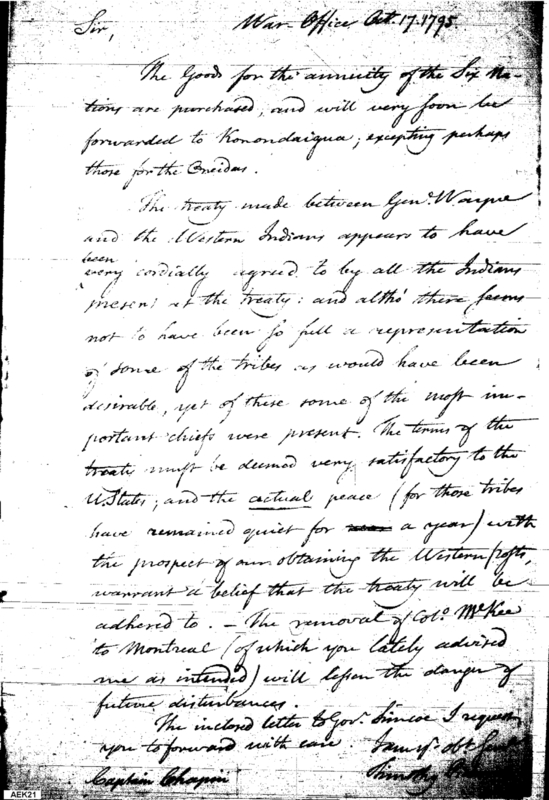 War-Office Oct. 17. 1795.
Sir,
The Goods for the annuity of the Six Na-
tions are purchased, and will very soon be
forwarded to Konondaigua; excepting perhaps
those for the Oneidas.
The treaty made between Genl. Wayne
and the Western Indians appears to have
been
very cordially agreed to by all the Indians
present at the treaty: and altho' there seems
not to have been so full a representation
of some of the tribes as would have been
desirable, yet of these some of the most im-
portant chiefs were present. The terms of the
treaty must be deemed very satisfactory to the
UStates; and the actual peace (for those tribes
have remained quiet for a year) with
the prospect of our obtaining the Western posts,
warrant a belief that the treaty will be
adhered to. - The removal of Colo. McKee
to Montreal (of which you lately advised
me as intended) will lessen the danger of
future disturbances.
The inclosed letter to Govr. Simcoe I request
you to forward with care. I am yr. obt. Servt.
Captain Chapin
Timothy
AEK21